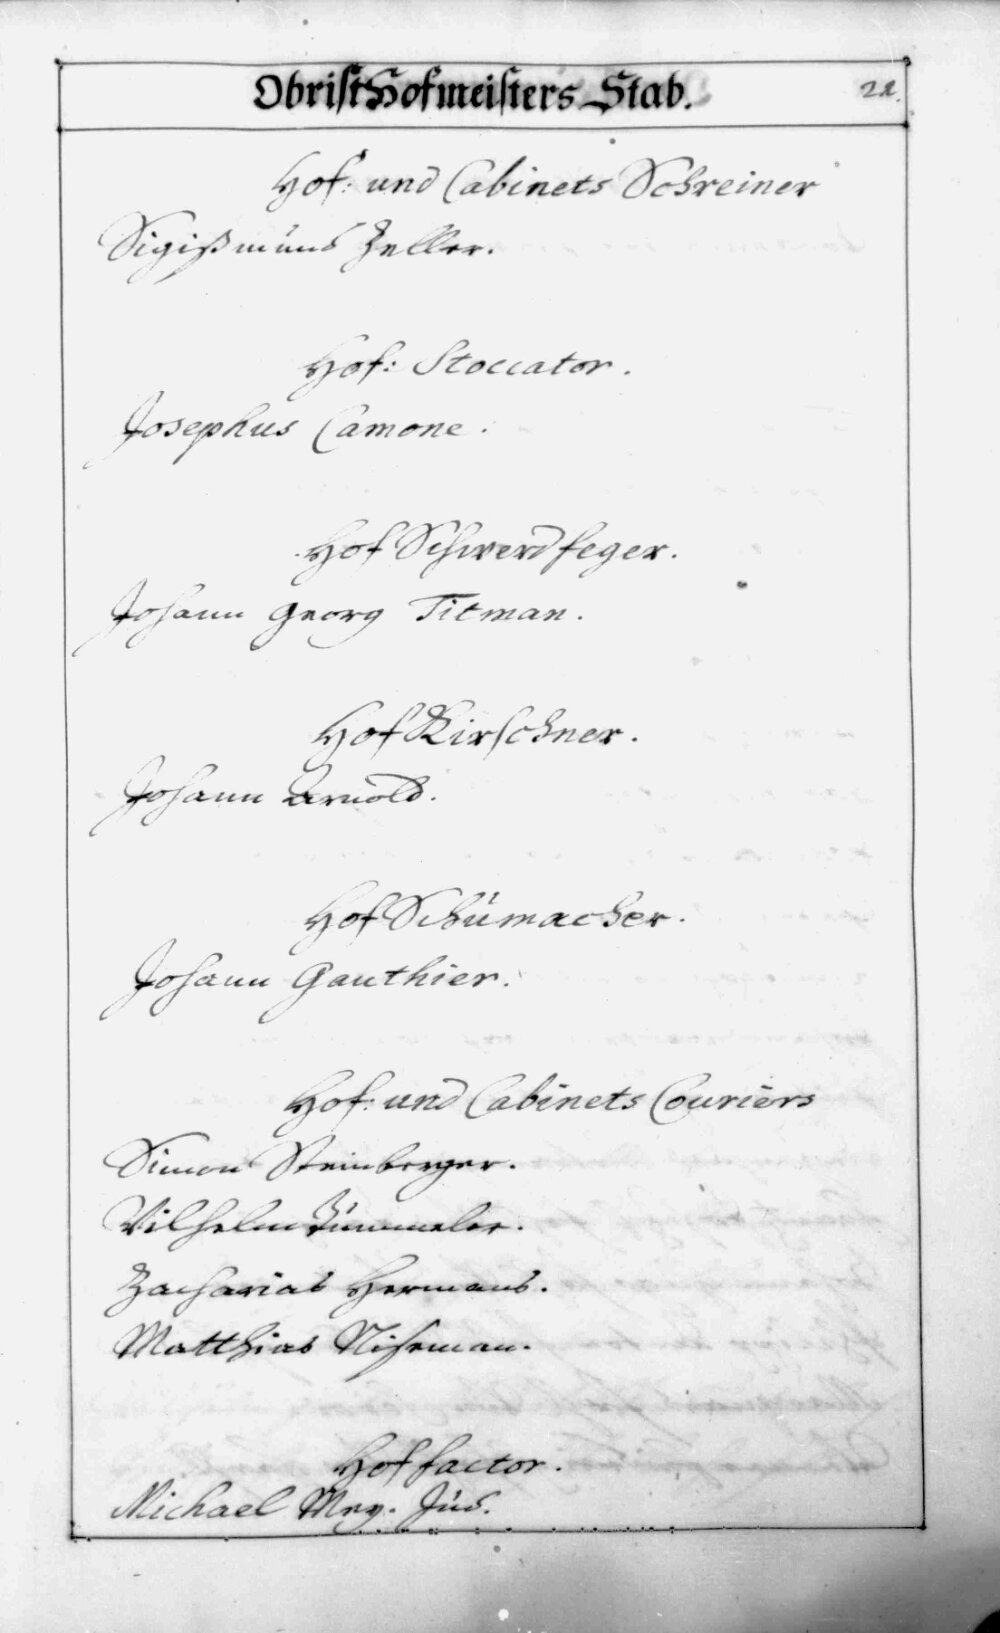 ObristHofmeisters Stab.
22.
Hof: und Cabinets Schreiner
Sigißmund Zeller.
Hof: Stoccator.
Josephus Camone.
Hof Schwerdfeger.
Johann Georg Titman.
Hof Kirschner.
Johann Arnold.
Hof Schumacher.
Johann Gauthier.
Hof: und Cabinets Couriers
Simon Steinberger.
Wilhelm Kümmeler.
Zacharias Hermans.
Matthias Niseman.
Hof factor.
Michael Mey. Jud.